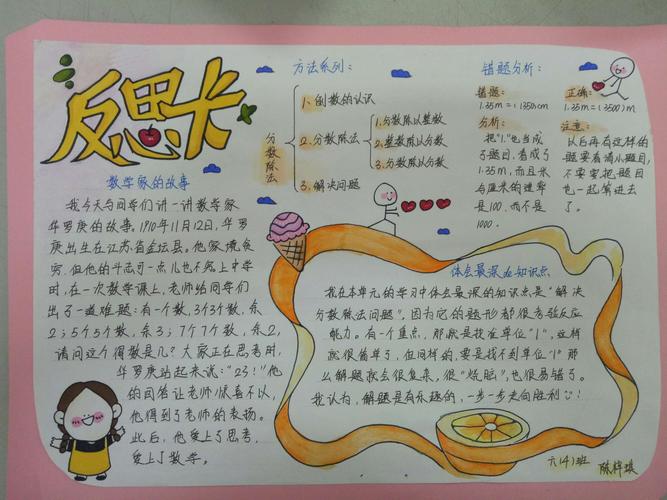 反思卡
数学家的故事
我今天与同学们讲一讲数学家
华罗庚的故事。1910年11月12日，华
罗庚出生在江苏省金坛县。他家境贫
穷，但他的斗志可一点儿也不弱。上中学
时，在一次数学课上，老师给同学们
出了一道难题：有一个数，3个3个数，余
2；5个5个数，余3；7个7个数，余2，
请问这个得数是几？大家正在思考时，
华罗庚站起来说："23！"他
的回答让老师惊喜不以，
他得到了老师的表扬。
此后，他爱上了思考，
爱上了数学。
方法系列：
分数除法
1、倒数的认识
2、分数除法
1.分数除以整数
2.整数除以分数
3.分数除以分数
3、解决问题
错题分析：
错题：
1.35m=(1350)cm
分析：
把"1."也当成
了题目，看成了
1.35m，而且米
与厘米的进率
是100，而不是
1000。
正确：
1.35m=(3500)m
注意：
以后再有这样的
题要看清小题目，
不要要把题目
也一起算进去
了。
体会最深的知识点
我在本单元的学习中体会最深的知识点是"解决
分数除法问题"，因为它的题形都很考验反应
能力。有一个重点，那就是找准单位"1"，这样
就很简单了，但同样的，要是找不到单位"1"那
么解题就会很复杂，很"烧脑"，也很易错了。
我认为，解题是有乐趣的，一步一步走向胜利！
六(4)班